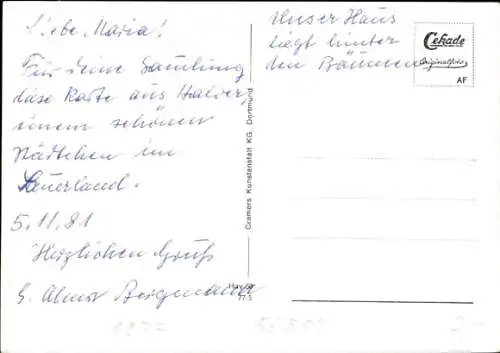 Liebe Maria!
Für Deine Samlung
diese Karte aus Halver
einem schönen
Städtchen im
Sauerland.
5.11.81
Herzlichen Gruß
Bergmann
Unser Haus
liegt hinter
den Bäumen
Cekade
Originalfoto
AF
Cramers Kunstanstalt KG, Dortmund